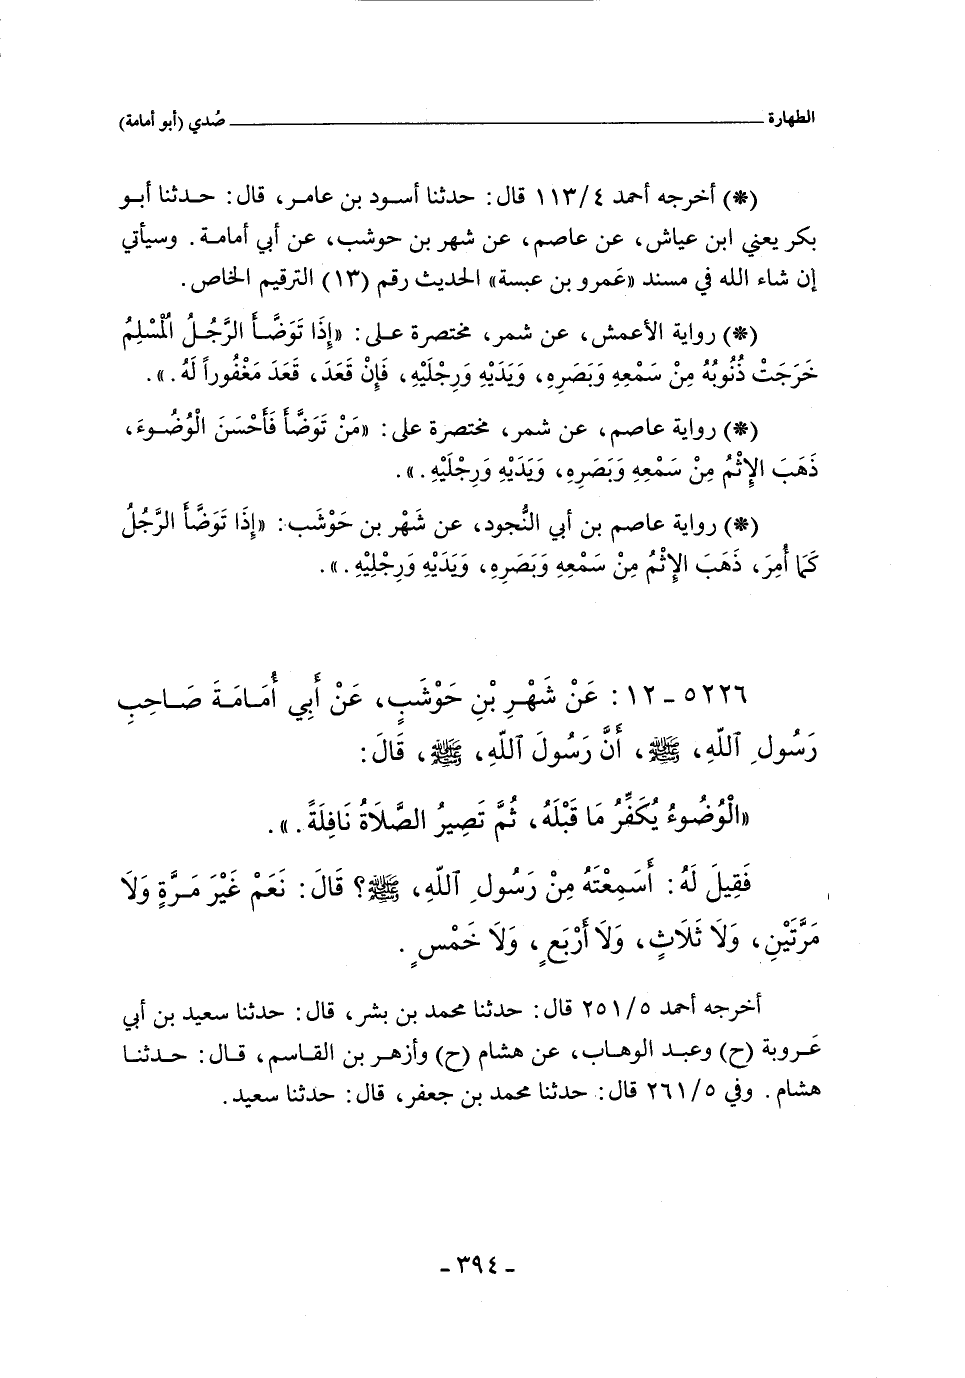 الطهارة ــــــــــــــــــــــــ صُدي (أبو أمامة)
(*) أخرجه أحمد ٤/ ١١٣ قال: حدثنا أسود بن عامر، قال: حدثنا أبو
بكر يعني ابن عياش، عن عاصم، عن شهر بن حوشب، عن أبي أمامة. وسيأتي
إن شاء الله في مسند «عَمرو بن عبسة» الحديث رقم (١٣) الترقيم الخاص.
(*) رواية الأعمش، عن شمر، مختصرة على: «إِذَا تَوَضَّأَ الرَّجُلُ الْمُسْلِمُ
خَرَجَتْ ذُنُوبُهُ مِنْ سَمْعِهِ وَبَصَرِهِ، وَيَدَيْهِ وَرِجْلَيْهِ، فَإِنْ قَعَدَ، قَعَدَ مَغْفُوراً لَهُ.».
(*) رواية عاصم، عن شمر، مختصرة على: «مَنْ تَوَضَّأَ فَأَحْسَنَ الْوُضُوءَ،
ذَهَبَ الإِثْمُ مِنْ سَمْعِهِ وَبَصَرِهِ، وَيَدَيْهِ وَرِجْلَيْهِ.».
(*) رواية عاصم بن أبي النُّجود، عن شَهْر بن حَوْشَب: «إِذَا تَوَضَّأَ الرَّجُلُ
كَمَا أُمِرَ، ذَهَبَ الإِثْمُ مِنْ سَمْعِهِ وَبَصَرِهِ، وَيَدَيْهِ وَرِجْلِيْهِ.».
٥٢٢٦ - ١٢: عَنْ شَهْرِ بْنِ حَوْشَبٍ، عَنْ أَبِي أُمَامَةَ صَاحِبِ
رَسُولِ ٱللّهِ، ﷺ، أَنَّ رَسُولَ ٱللّهِ، ﷺ، قَالَ:
«الْوُضُوءُ يُكَفِّرُ مَا قَبْلَهُ، ثُمَّ تَصِيرُ الصَّلَاةُ نَافِلَةً.».
فَقِيلَ لَهُ: أَسَمِعْتَهُ مِنْ رَسُولِ ٱللّهِ، ﷺ؟ قَالَ: نَعَمْ غَيْرَ مَرَّةٍ وَلَا
مَرَّتَيْنِ، وَلَا ثَلَاثٍ، وَلَا أَرْبَعٍ، وَلَا خَمْسٍ.
أخرجه أحمد ٥/ ٢٥١ قال: حدثنا محمد بن بشر، قال: حدثنا سعيد بن أبي
عَروبة (ح) وعبد الوهاب، عن هشام (ح) وأزهر بن القاسم، قال: حدثنا
هشام. وفي ٥/ ٢٦١ قال: حدثنا محمد بن جعفر، قال: حدثنا سعيد.
- ٣٩٤ -